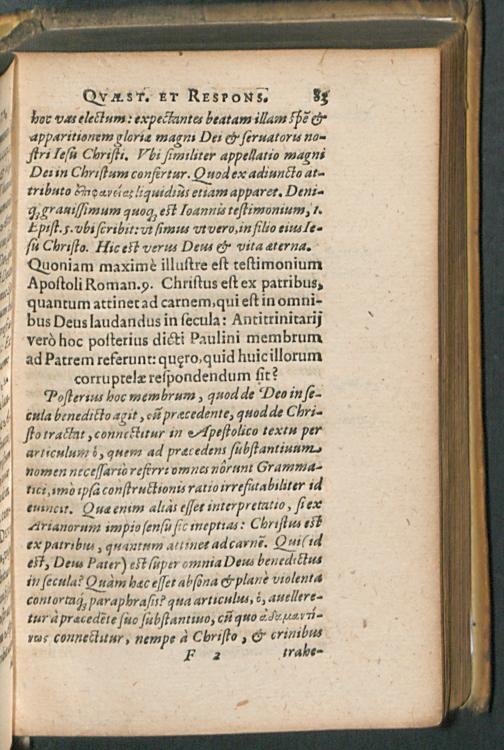 QVÆST. ET RESPONS. 83
hoc vas electum: expectantes beatam illam spē &
apparitionem gloriæ magni Dei & seruatoris no-
stri Iesu Christi. Vbi similiter appellatio magni
Dei in Christum confertur. Quod ex adiuncto at-
tributo ἐπιφανείας liquidius etiam apparet. Deni-
q; grauissimum quoq; est Ioannis testimonium, 1.
Epist. 5. vbi scribit: vt simus vt vero, in filio eius Ie-
su Christo. Hic est verus Deus & vita æterna.
Quoniam maximè illustre est testimonium
Apostoli Roman. 9. Christus est ex patribus,
quantum attinet ad carnem, qui est in omni-
bus Deus laudandus in secula: Antitrinitarij
verò hoc posterius dicti Paulini membrum
ad Patrem referunt: quęro, quid huic illorum
corruptelæ respondendum sit?
Posterius hoc membrum, quod de Deo in se-
cula benedicto agit, cū præcedente, quod de Chri-
sto tractat, connectitur in Apostolico textu per
articulum ὁ, quem ad præcedens substantiuum
nomen necessariò referri omnes nôrunt Gramma-
tici, imò ipsa constructionis ratio irrefutabiliter id
euincit. Quæ enim aliàs esset interpretatio, si ex
Arianorum impio sensu sic ineptias: Christus est
ex patribus, quantum attinet ad carnē. Qui (id
est, Deus Pater) est super omnia Deus benedictus
in secula? Quàm hæc esset absona & planè violenta
contortaq; paraphrasis? qua articulus, ὁ, auellere-
tur à præcedēte suo substantiuo, cū quo ἀδαμαντί-
νως connectitur, nempe à Christo, & crinibus
F 2 trahe-